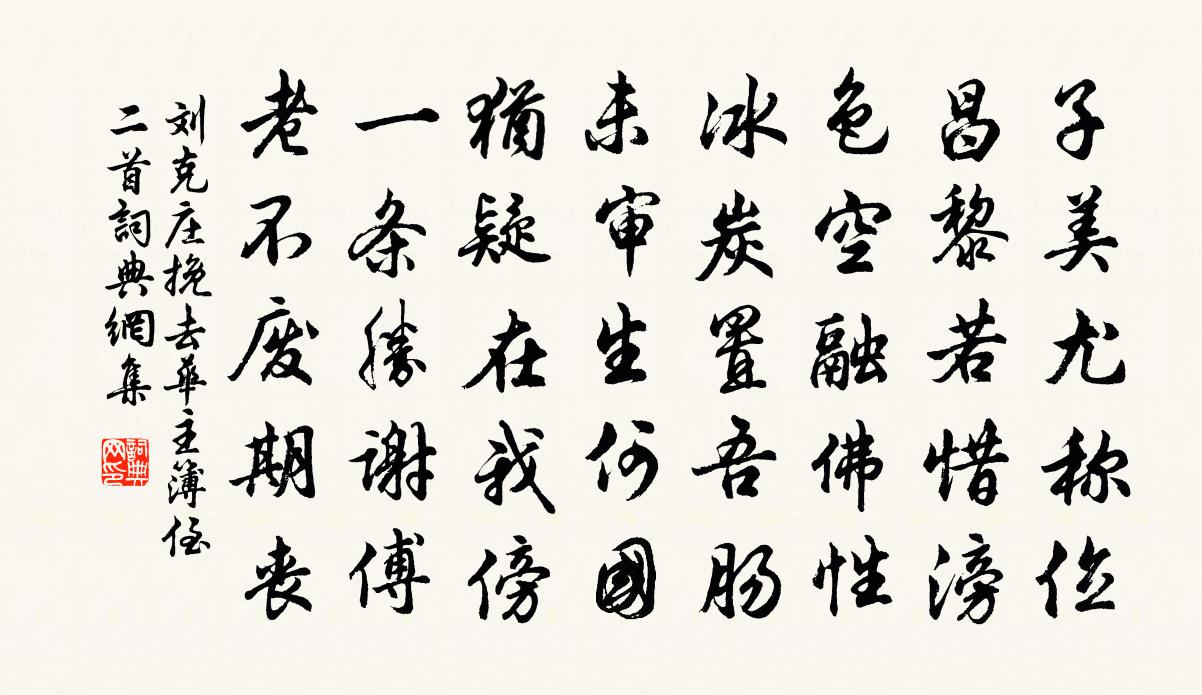 子美尤称位
昌黎若惜滂
色空融佛性
冰炭置吾肠
未审生何國
猶疑在我傍
一条勝谢傅
老不废期丧
刘克庄挽去華主簿侄
二首詞典網集
詞典网印